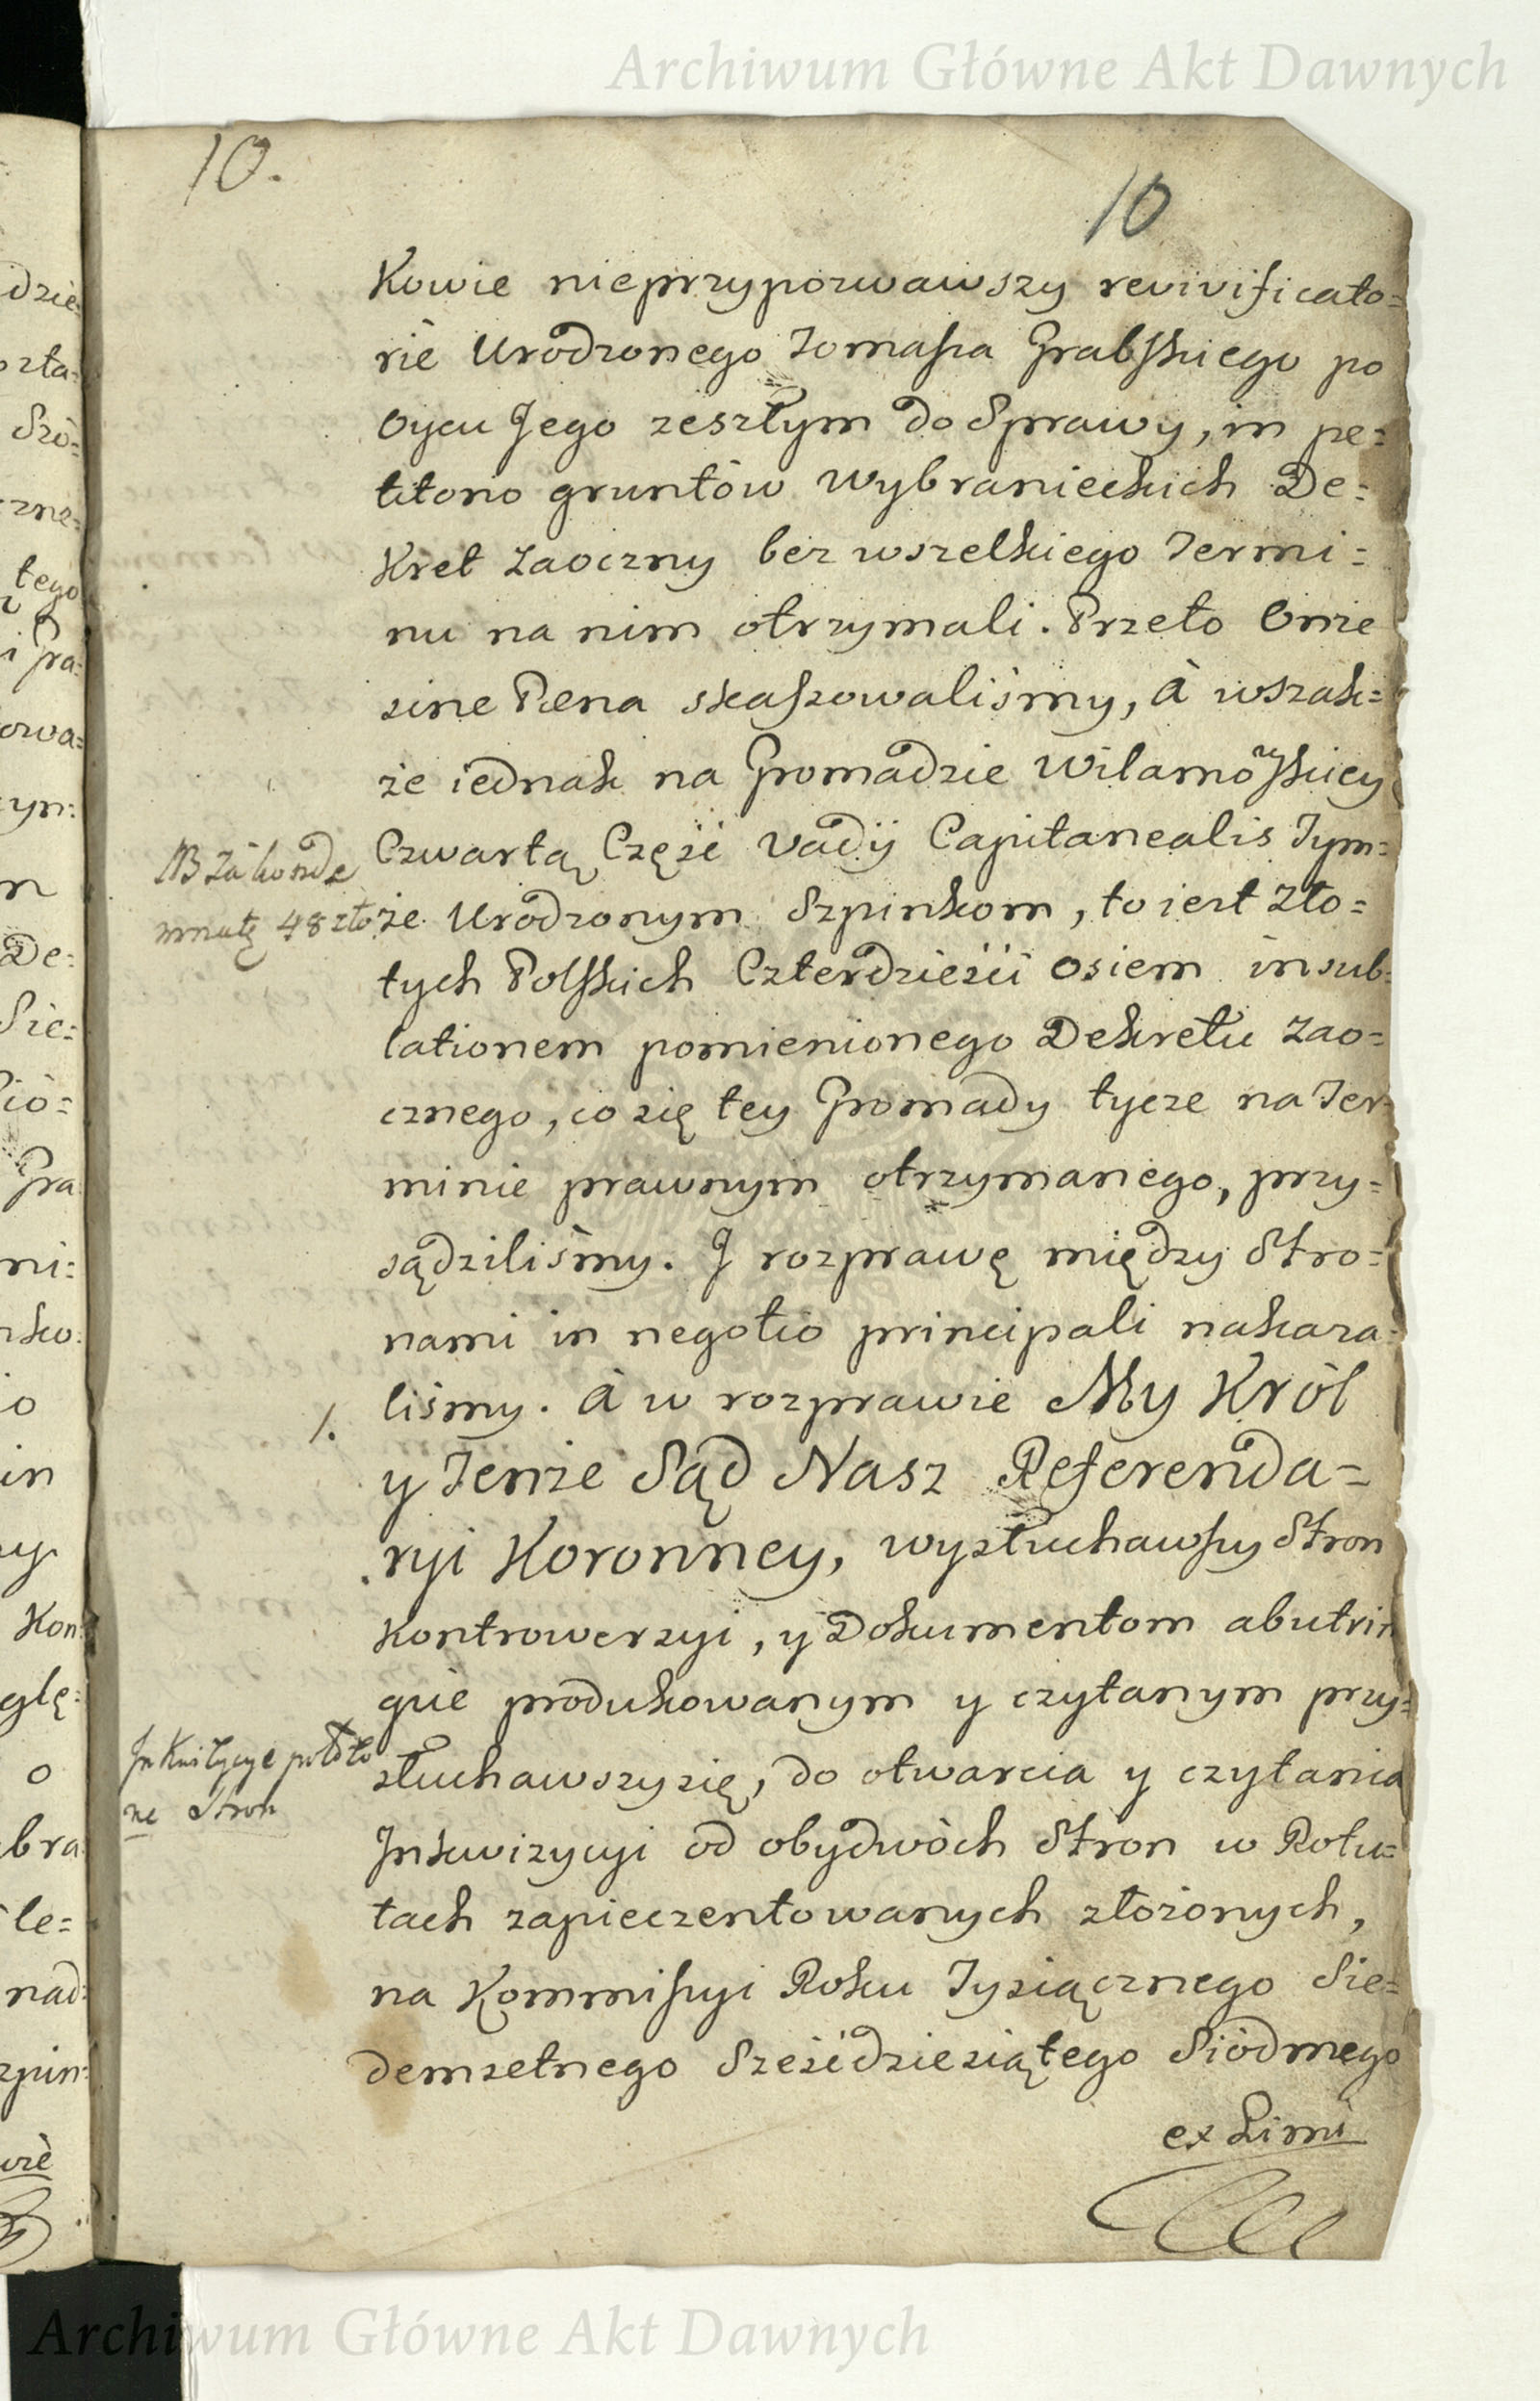 Archiwum Główne Akt Dawnych
10.
10
Kowie nieprzypozwawszy revivificato=
rie Urodzonego Tomasza Grabskiego po
Oycu Jego zeszłym do Sprawy, in pe=
titono gruntów Wybranieckich De=
kret Zaoczny bez wszelkiego Termi=
nu na nim otrzymali. Przeto Onże
sine Pæna skaszowaliśmy, à wszak=
że iednak na Gromadzie Wilamowskiey
Czwartą Część Vadij Capitanealis Tym=
że Urodzonym Szpinkom, to iest Zło=
tych Polskich Czterdzieści Osiem in sub=
lationem pomienionego Dekretu Zao=
cznego, co się tey Gromady tycze na Ter=
minie prawnym otrzymanego, przy=
sądziliśmy. J rozprawę między Stro=
nami in negotio principali nakaza=
liśmy. à w rozprawie My Król
y Tenże Sąd Nasz Referenda=
ryi Koronney, wysłuchawszy Stron
Kontrowerzyi, y Dokumentom ab utrin
que produkowanym y czytanym przy=
słuchawszy się, do otwarcia y czytania
Jnkwizycyi od obydwóch Stron w Rotu=
łach zapieczentowanych złożonych,
na Kommissyi Roku Tysiącznego Sie=
demsetnego Sześćdziesiątego Siódmego
ex Limi
NB Za
48 zło
1.
ne Stron
dzie=
zła=
Szo=
czne=
tego
i Gra=
owa=
zym=
m
De=
Sie=
Gra
ni=
o
in
zy
Kon
glę=
o
bra
le=
nad=
zpin=
Archiwum Główne Akt Dawnych